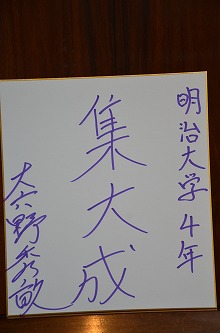 明治大学4年
集大成
大六野秀畝